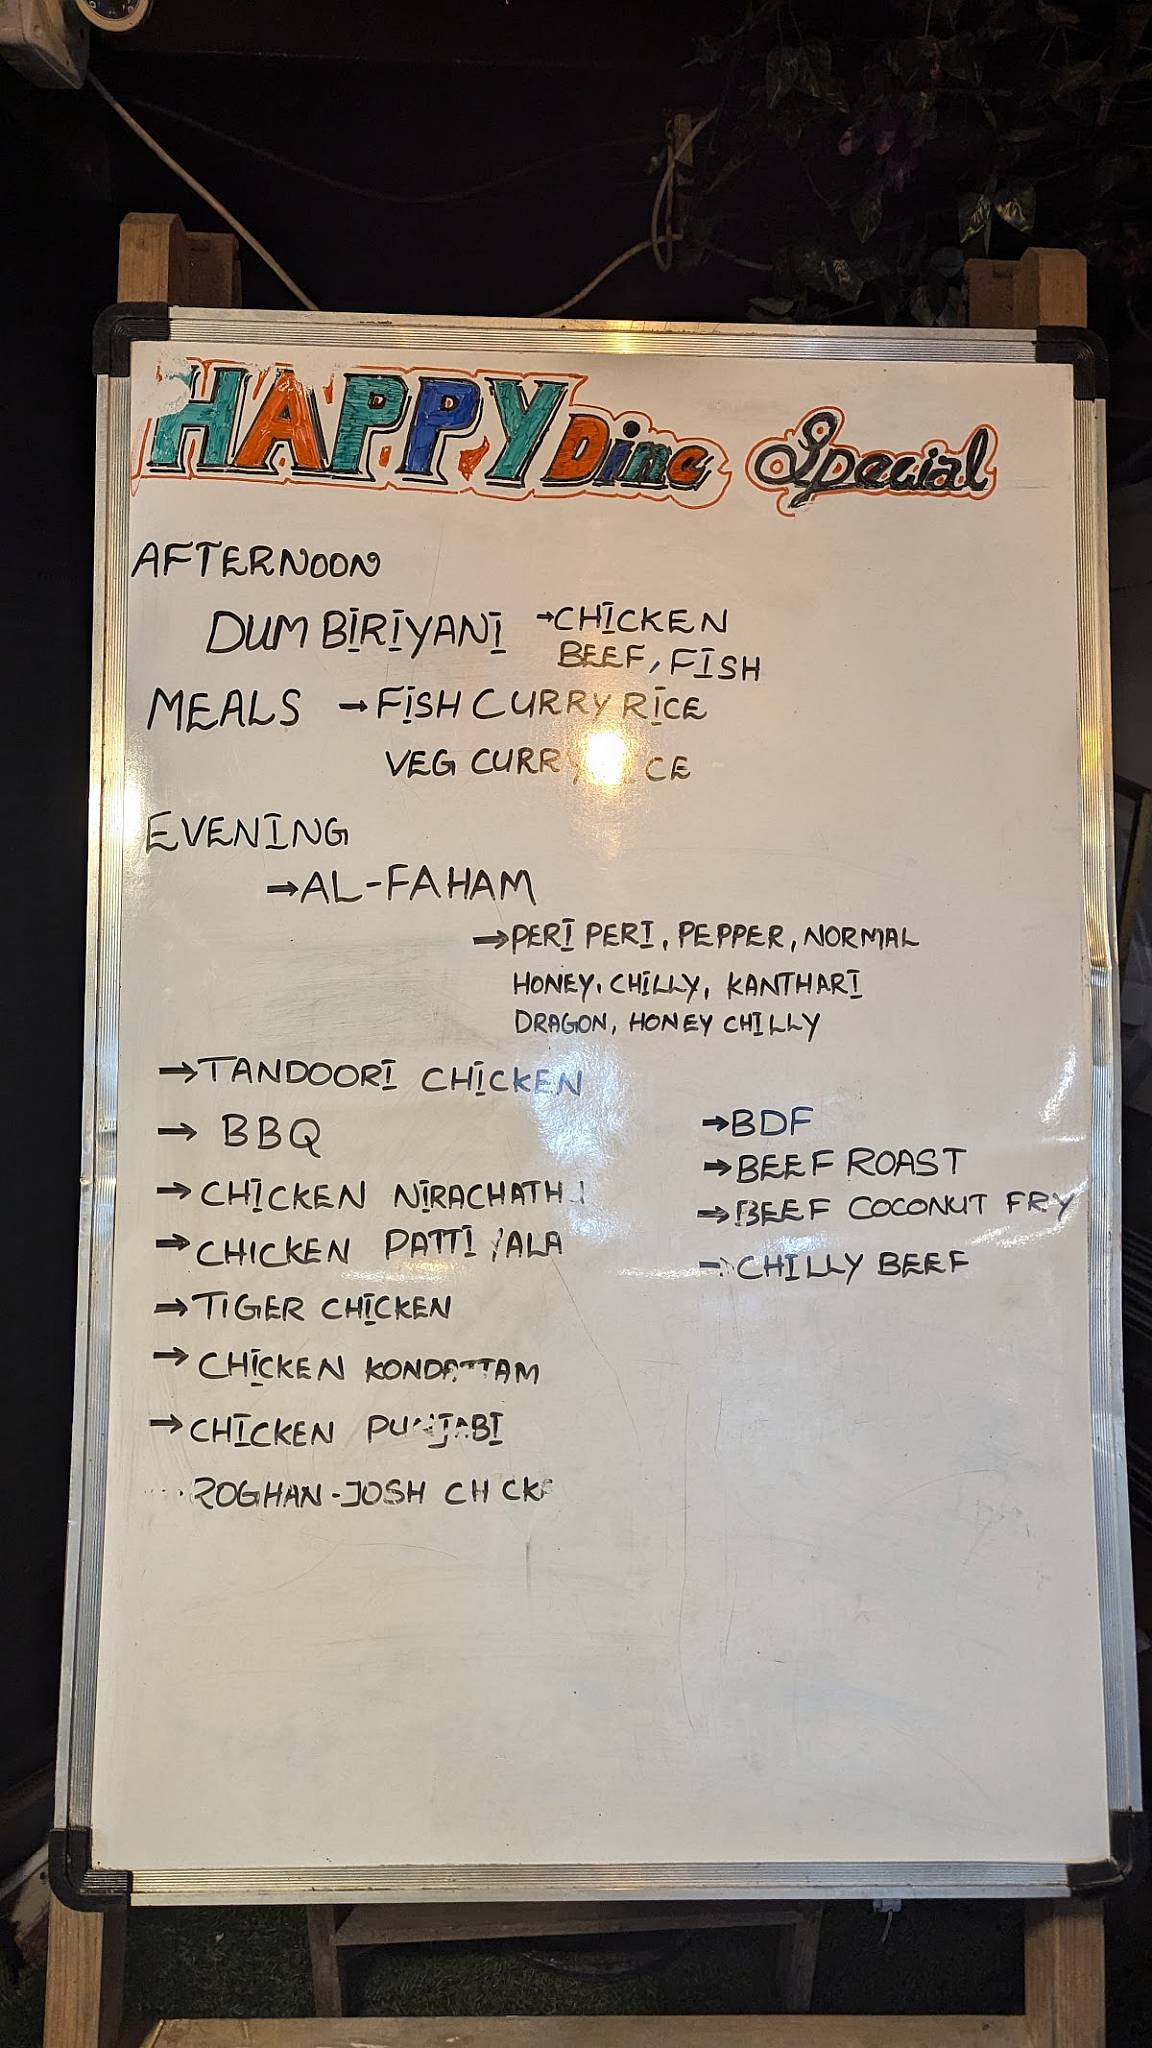 HAPPY Dine Special
AFTERNOON
DUM BIRIYANI → CHICKEN
BEEF, FISH
MEALS → FISH CURRY RICE
VEG CURRY
EVENING
→ AL-FAHAM
→ PERI PERI, PEPPER, NORMAL
HONEY, CHILLY, KANTHARI
DRAGON, HONEY CHILLY
→ TANDOORI CHICKEN
→ BBQ
→ CHICKEN NIRACHATHI
→ CHICKEN PATTIYALA
→ TIGER CHICKEN
→ CHICKEN KONDATTAM
→ CHICKEN PUNJABI
ROGHAN-JOSH
→ BDF
→ BEEF ROAST
→ BEEF COCONUT FRY
→ CHILLY BEEF